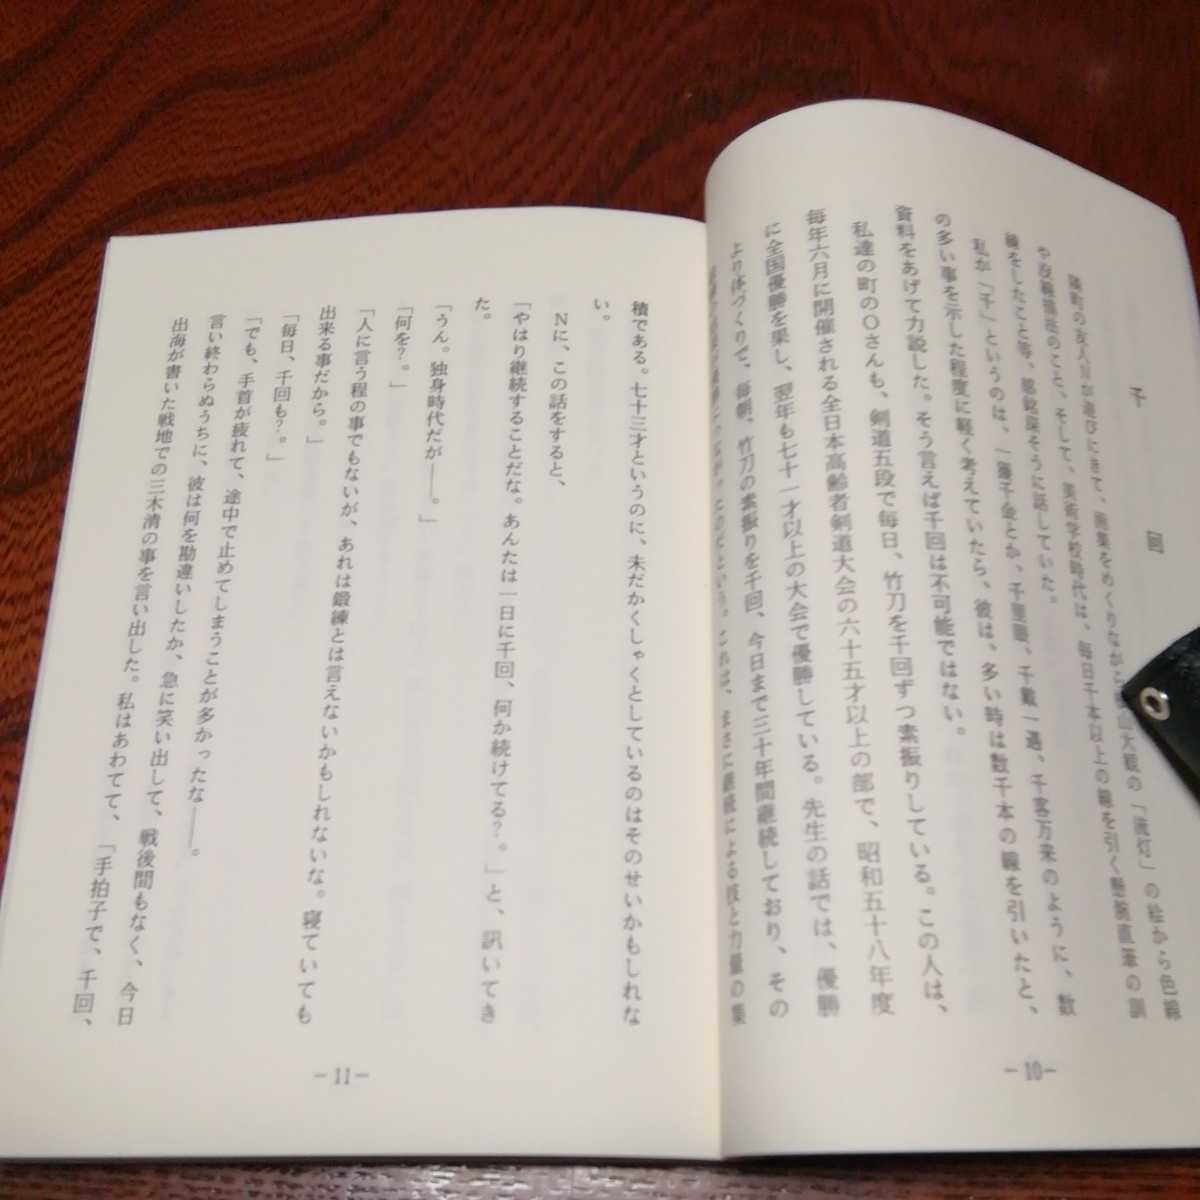 千回
隣町の友人Nが遊びにきて、画集をめくりながら大観の「流灯」の絵から色線
や友禅描法のこと、そして、美術学校時代は、毎日千本以上の線を引く懸腕直筆の訓
練をしたこと等、感銘深そうに話していた。
私が「千」というのは、一獲千金とか、千里眼、千載一遇、千客万来のように、数
の多い事を示した程度に軽く考えていたら、彼は、多い時は数千本の線を引いたと、
資料をあげて力説した。そう言えば千回は不可能ではない。
私達の町のOさんも、剣道五段で毎日、竹刀を千回ずつ素振りしている。この人は、
毎年六月に開催される全日本高齢者剣道大会の六十五才以上の部で、昭和五十八年度
に全国優勝を果し、翌年も七十一才以上の大会で優勝している。先生の話では、優勝
より体づくりで、毎朝、竹刀の素振りを千回、今日まで三十年間継続しており、その
だという。これは、まさに継続による技と力量の集
－10－
積である。七十三才というのに、未だかくしゃくとしているのはそのせいかもしれな
い。
Nに、この話をすると、
「やはり継続することだな。あんたは一日に千回、何か続けてる？。」と、訊いてき
た。
「うん。独身時代だが――。」
「何を？。」
「人に言う程の事でもないが、あれは鍛練とは言えないかもしれないな。寝ていても
出来る事だから。」
「毎日、千回も？。」
「でも、手首が疲れて、途中で止めてしまうことが多かったな――。
言い終わらぬうちに、彼は何を勘違いしたか、急に笑い出して、戦後間もなく、今日
出海が書いた戦地での三木清の事を言い出した。私はあわてて、「手拍子で、千回、
－11－